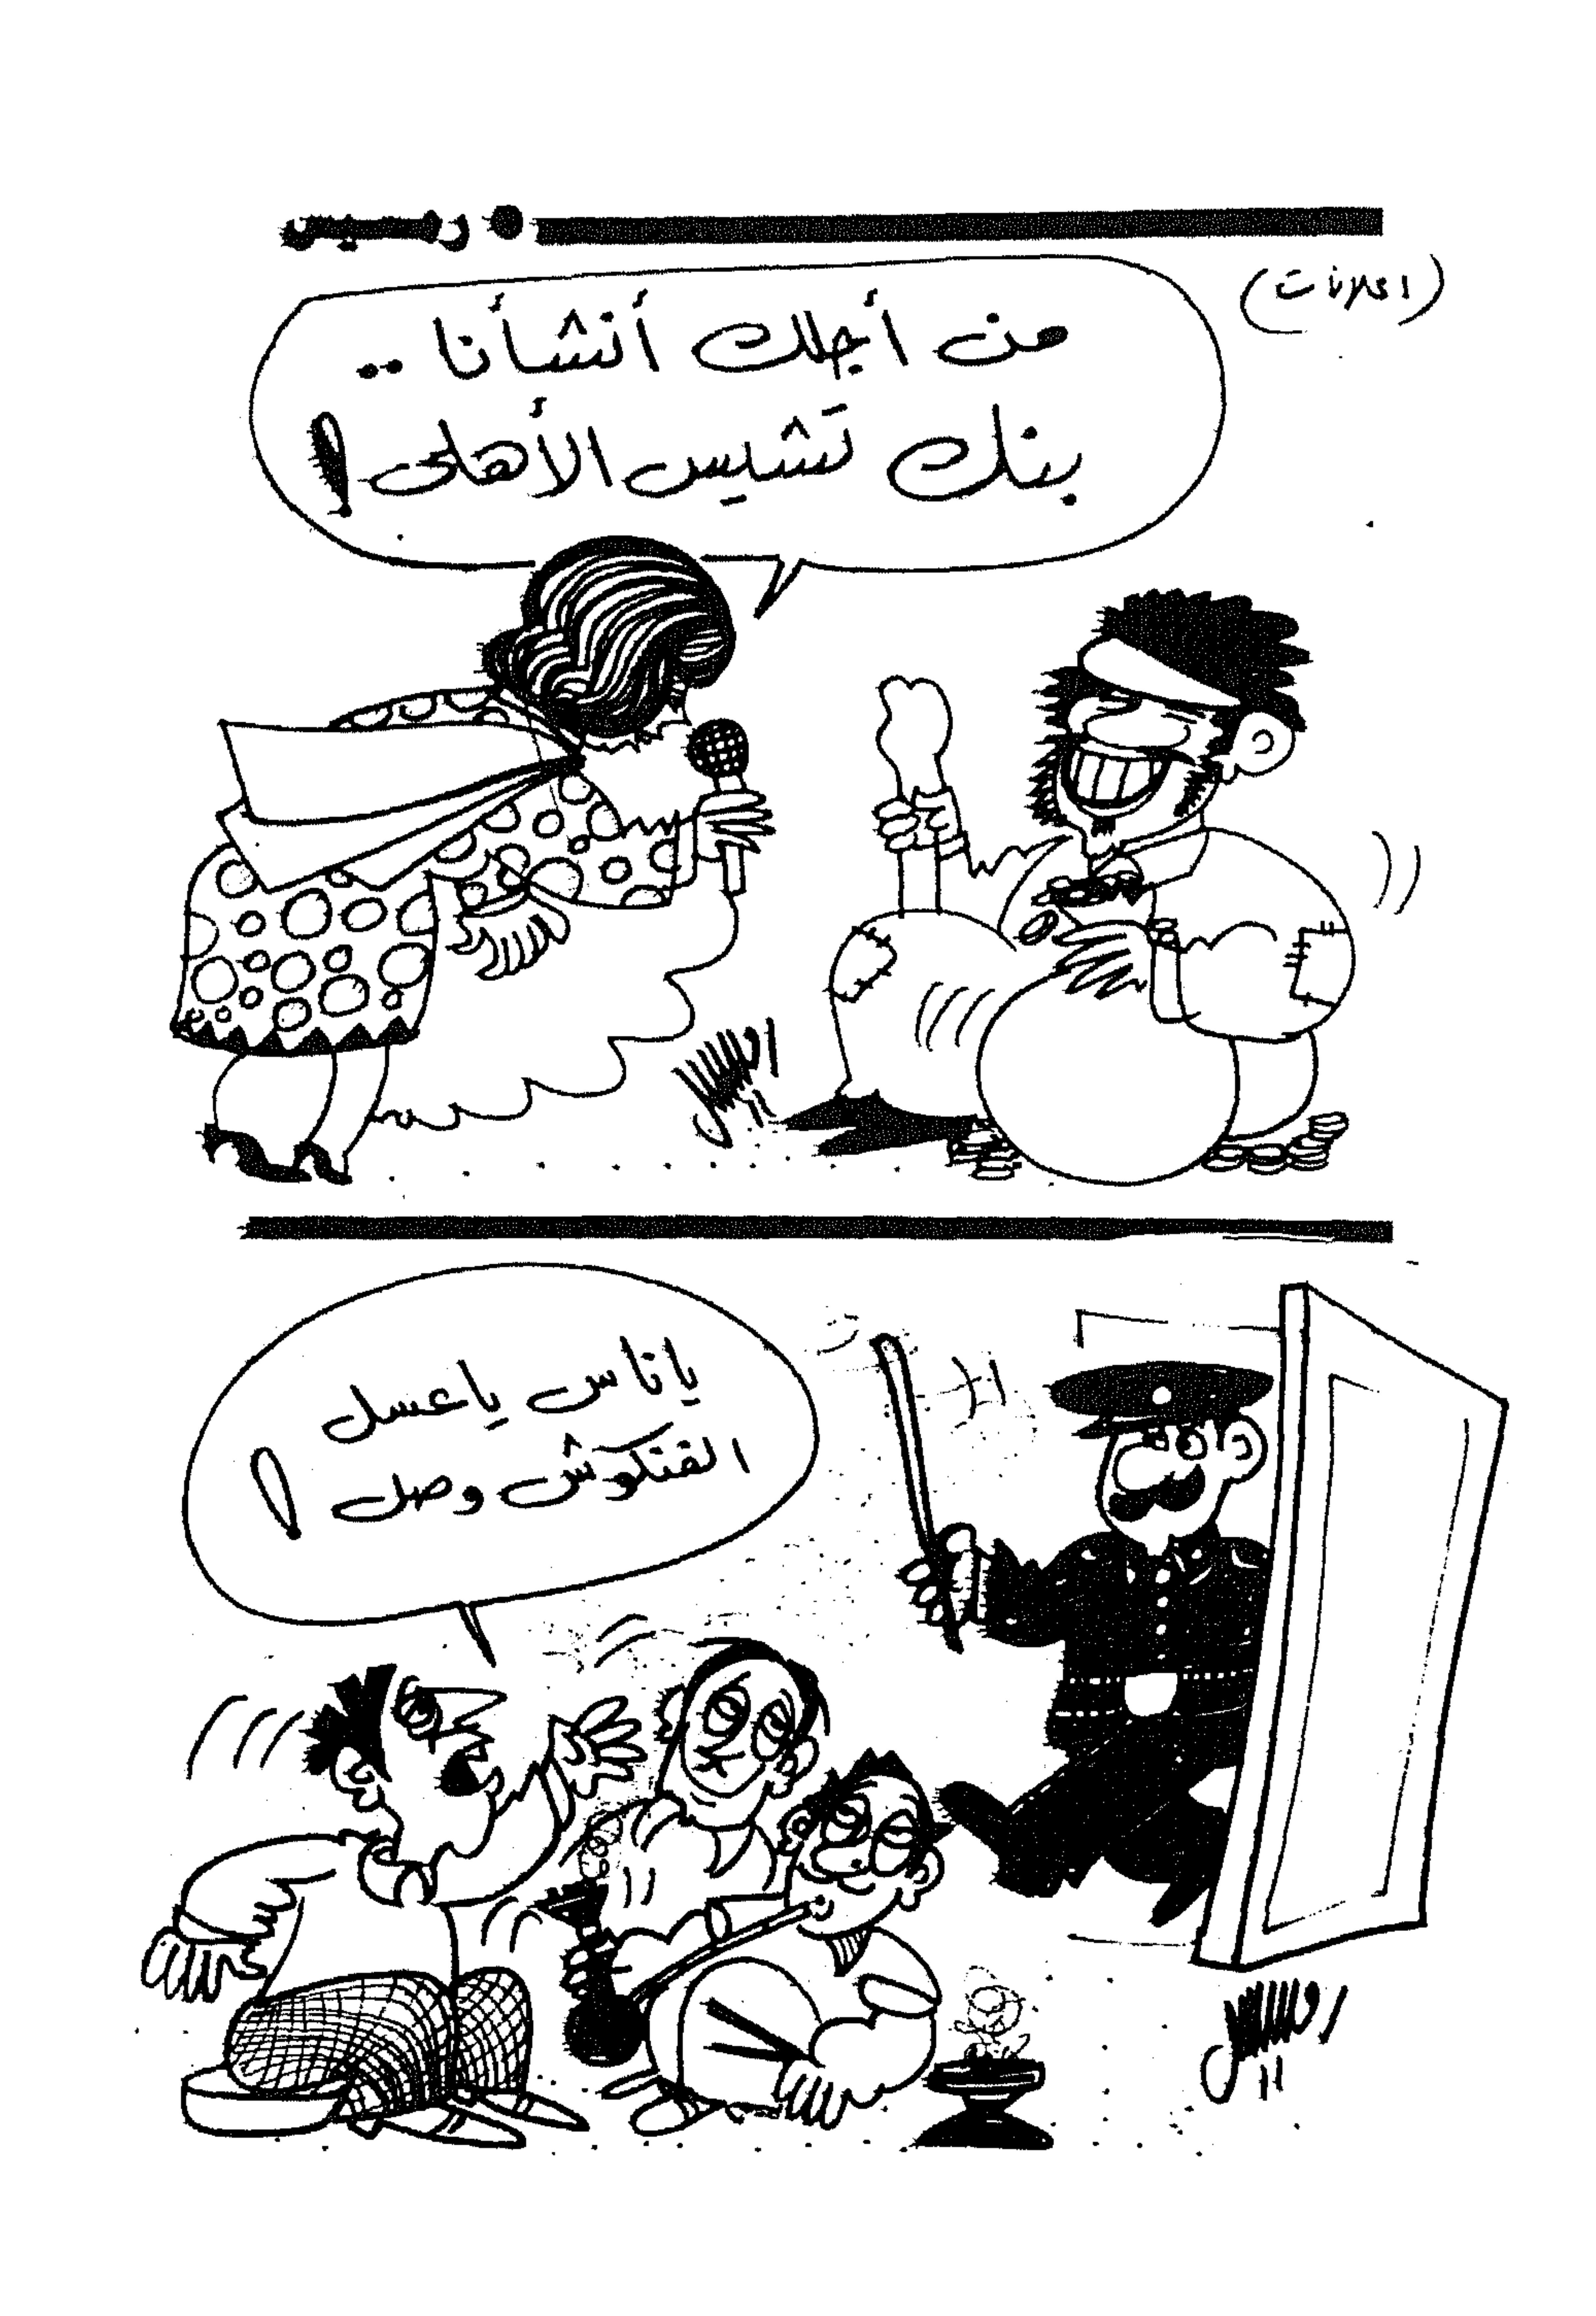 • رمسيس
(اعلانات)
من أجلك أنشأنا ..
بنك تشيس الأهلى !
رمسيس
ياناس ياعسل
الفنكوش وصل !
رمسيس